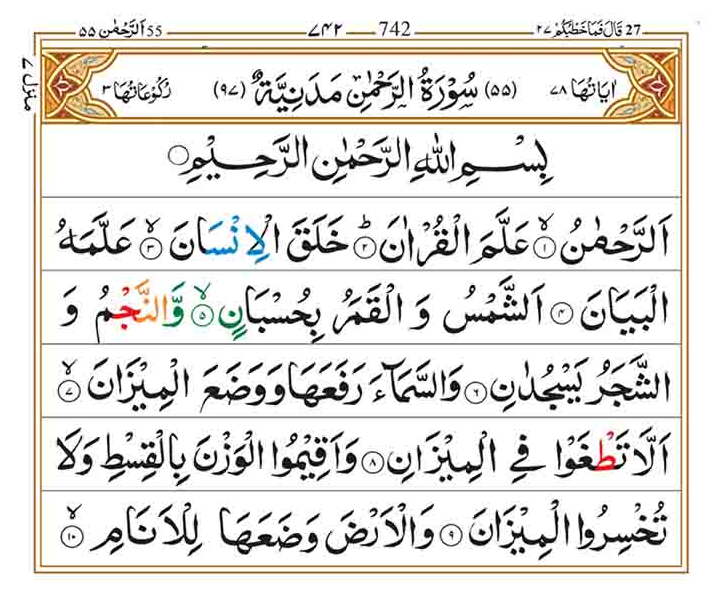 27 قَالَ فَمَا خَطْبُكُمْ ٢٧ 742 ٧٤٢ 55 اَلرَّحْمٰن ٥٥
منزل ٧
اٰیَاتُهَا ٧٨ (٥٥) سُوْرَةُ الرَّحْمٰنِ مَدَنِيَّةٌ (٩٧) رُكُوْعَاتُهَا ٣
بِسْمِ اللّٰهِ الرَّحْمٰنِ الرَّحِيْمِ ○
اَلرَّحْمٰنُ ۙ﴿١﴾ عَلَّمَ الْقُرْاٰنَ ؕ﴿٢﴾ خَلَقَ الْاِنْسَانَ ۙ﴿٣﴾ عَلَّمَهُ
الْبَيَانَ ﴿٤﴾ اَلشَّمْسُ وَ الْقَمَرُ بِحُسْبَانٍ ۙ﴿٥﴾ وَّالنَّجْمُ وَ
الشَّجَرُ يَسْجُدٰنِ ﴿٦﴾ وَالسَّمَآءَ رَفَعَهَا وَوَضَعَ الْمِيْزَانَ ۙ﴿٧﴾
اَلَّا تَطْغَوْا فِي الْمِيْزَانِ ﴿٨﴾ وَاَقِيْمُوا الْوَزْنَ بِالْقِسْطِ وَلَا
تُخْسِرُوا الْمِيْزَانَ ﴿٩﴾ وَالْاَرْضَ وَضَعَهَا لِلْاَنَامِ ۙ﴿١٠﴾